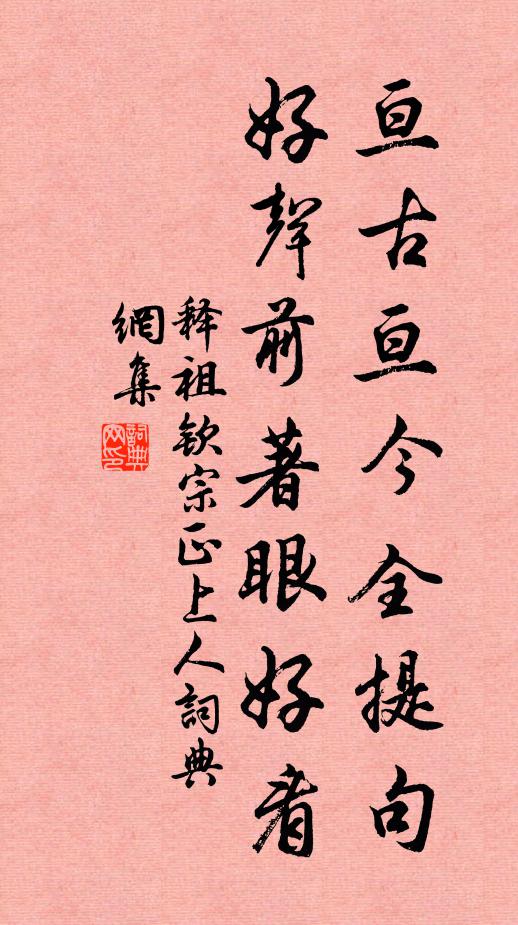 亘古亘今全提句
好聲前著眼好看
释祖钦宗正上人詞典
網集
詞典
网印